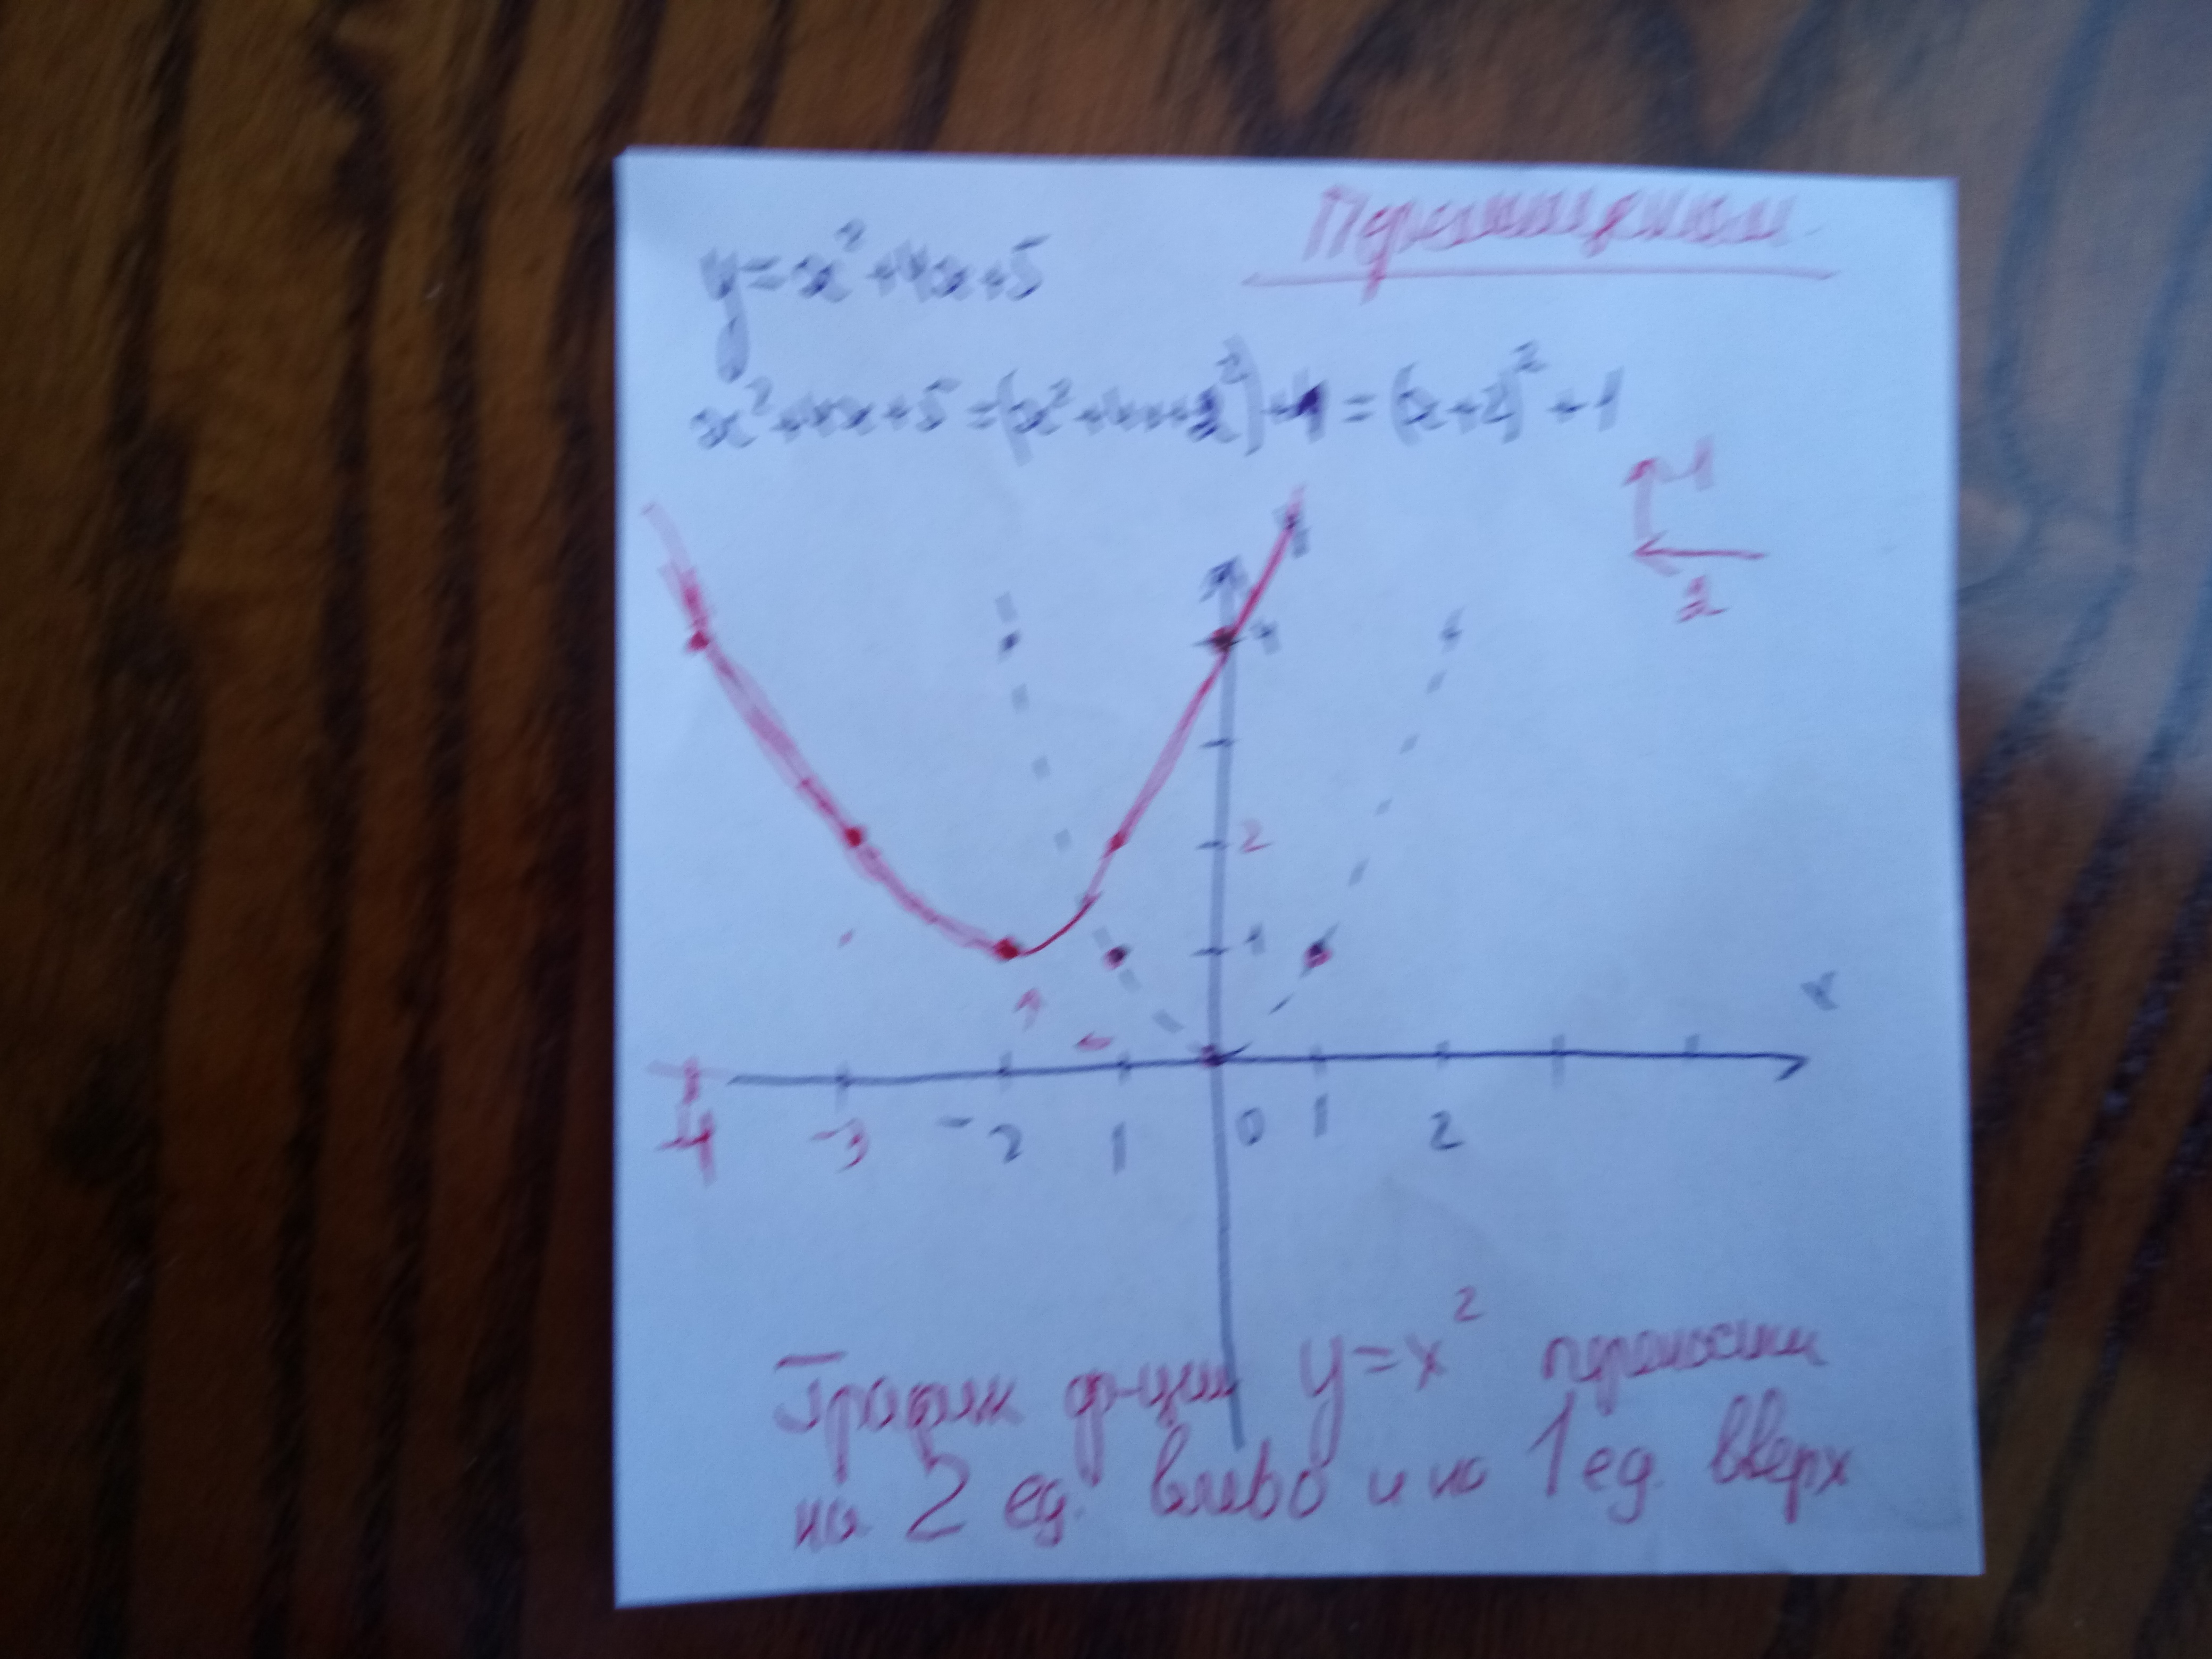 y=x²+4x+5
x²+4x+5=(x²+4x+2²)+1=(x+2)²+1
1
2
y
4
2
1
x
-4 -3 -2 1 0 1 2
График ф-ции y=x² переносим
на 2 ед. влево и на 1 ед. вверх